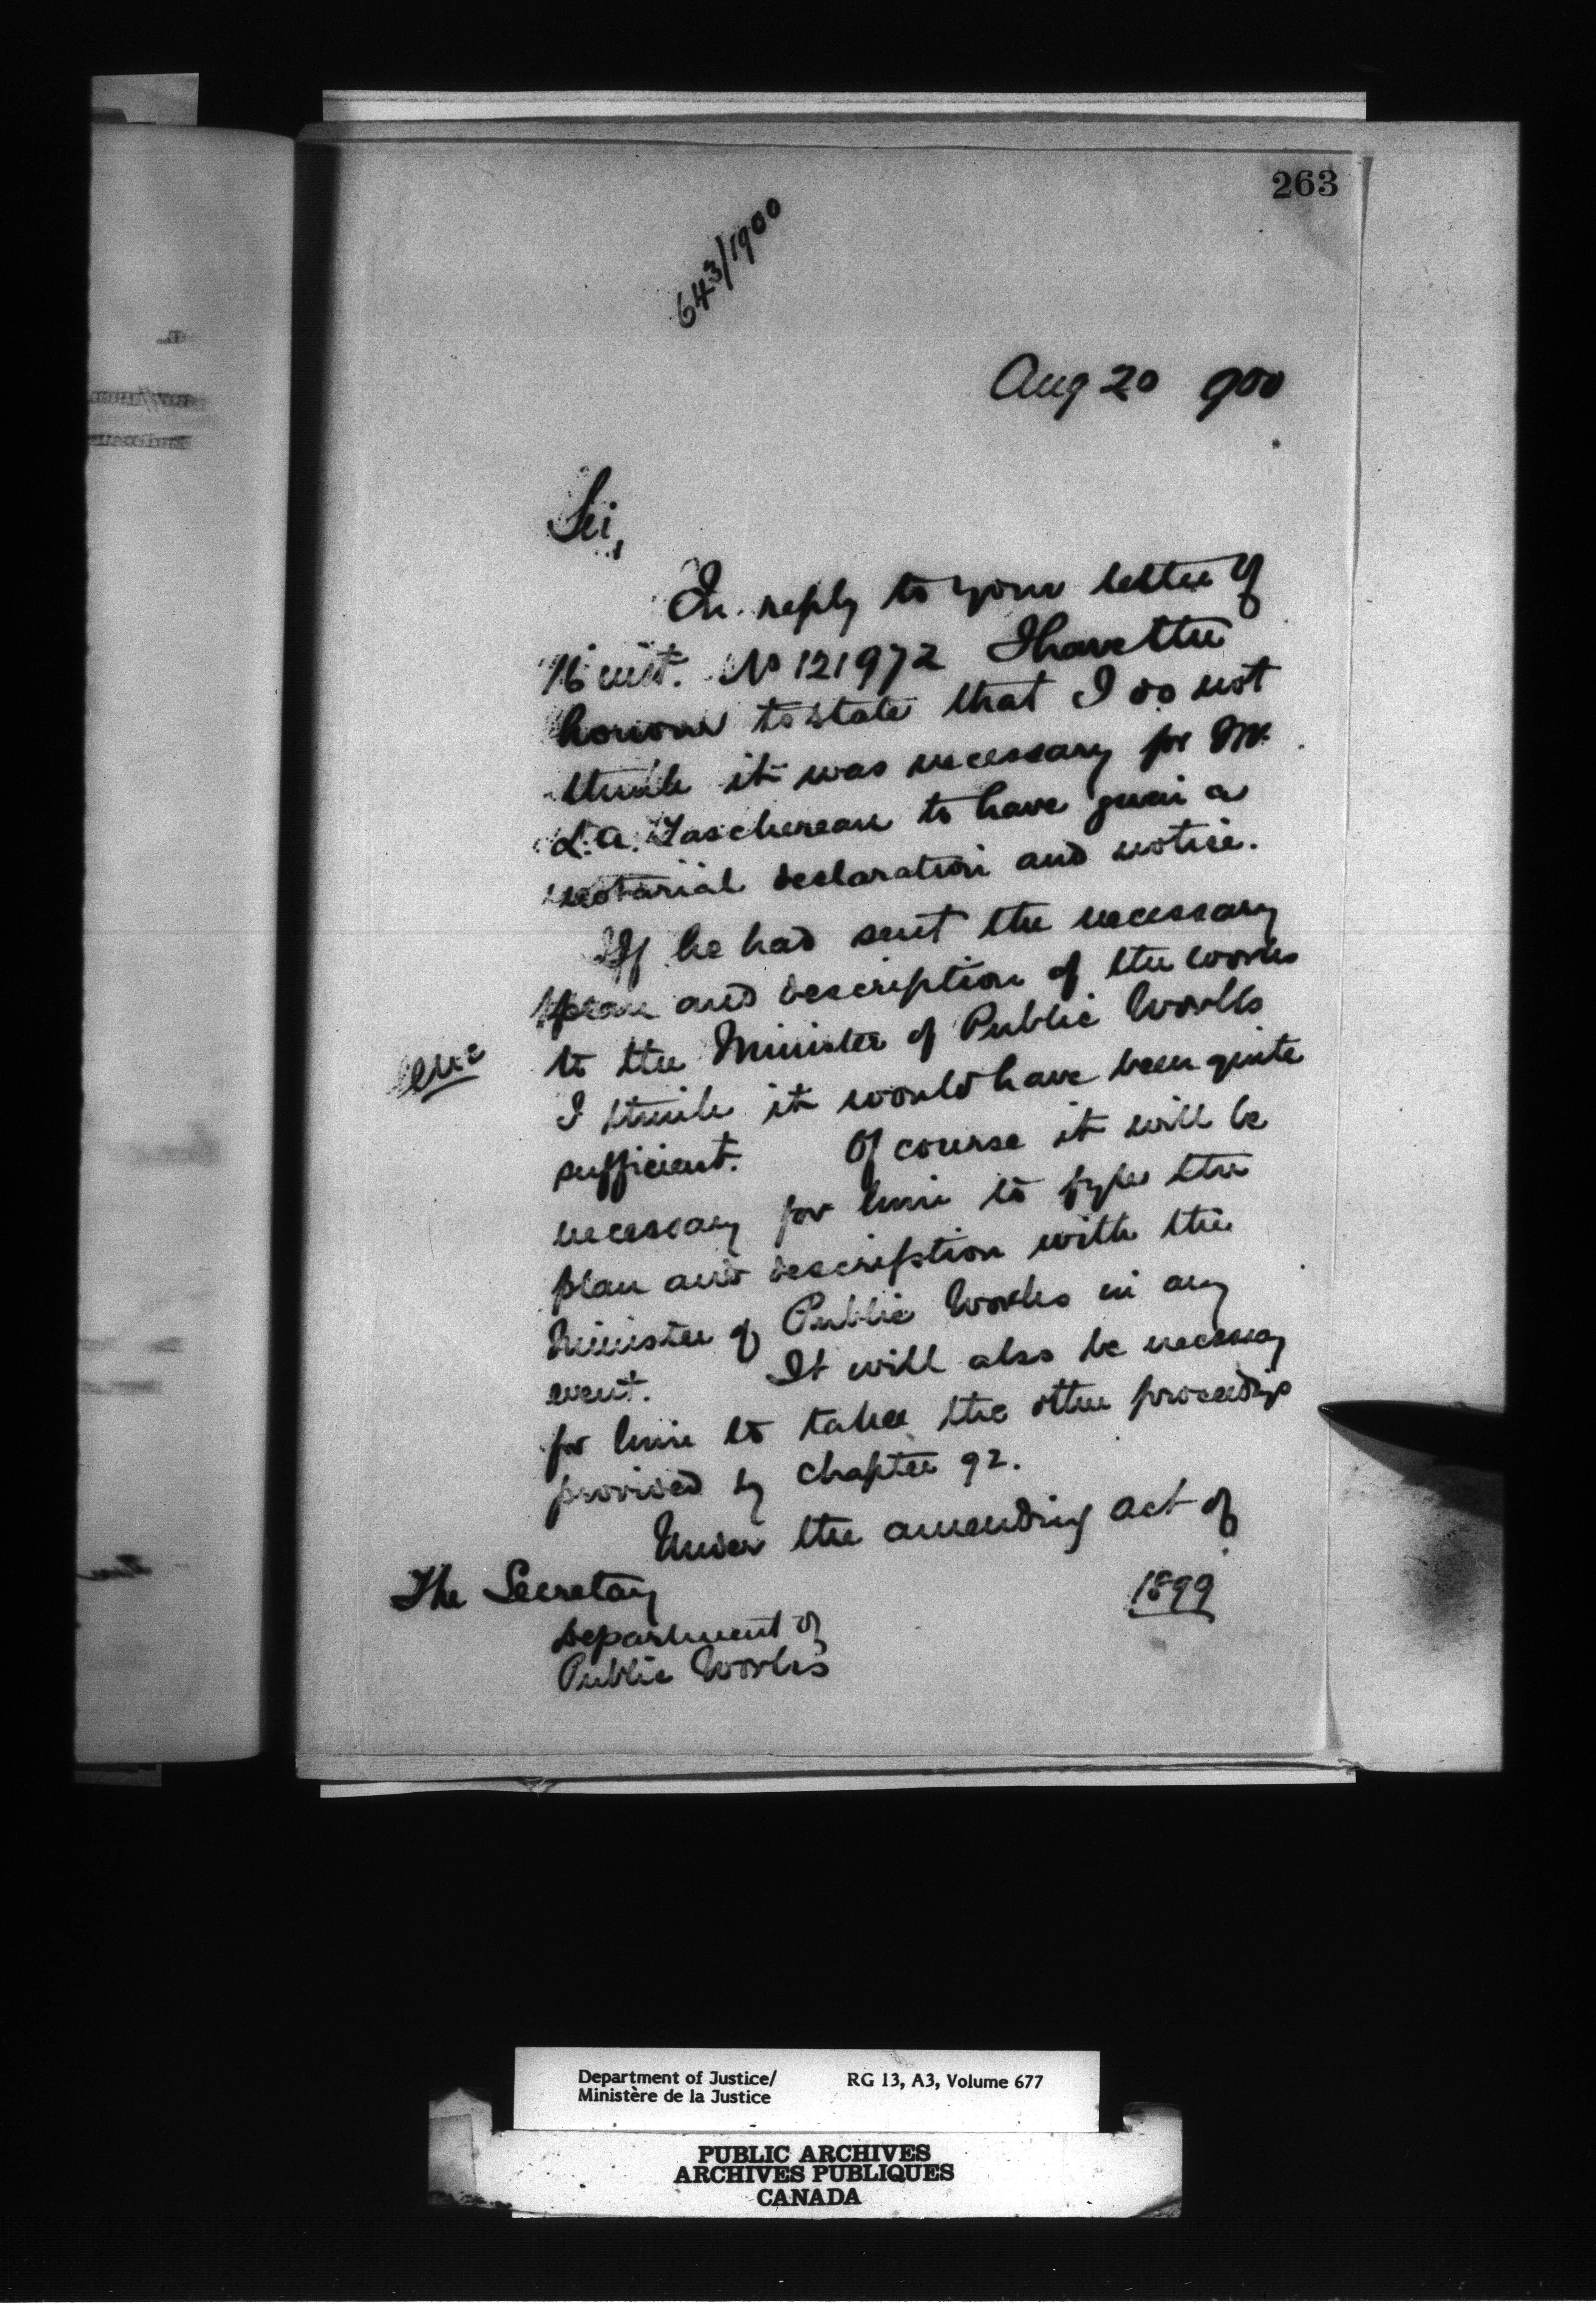 263
643/1900
Aug 20 900
Sir,
In reply to your letter of
16 inst. No 121972 I have the
honour to state that I do not
think it was necessary for Mr.
L. A. Taschereau to have given a
notarial declaration and notice.
If he had sent the necessary
plan and description of the works
to the Minister of Public Works
I think it would have been quite
sufficient. Of course it will be
necessary for him to the
plan and description with the
Minister of Public Works in any
event. It will also be necessary
for him to take the other proceedings
provided by Chapter 92.
Under the amending act of
1899
The Secretary
Department of
Public Works
Department of Justice/ RG 13, A3, Volume 677
Ministère de la Justice
PUBLIC ARCHIVES
ARCHIVES PUBLIQUES
CANADA